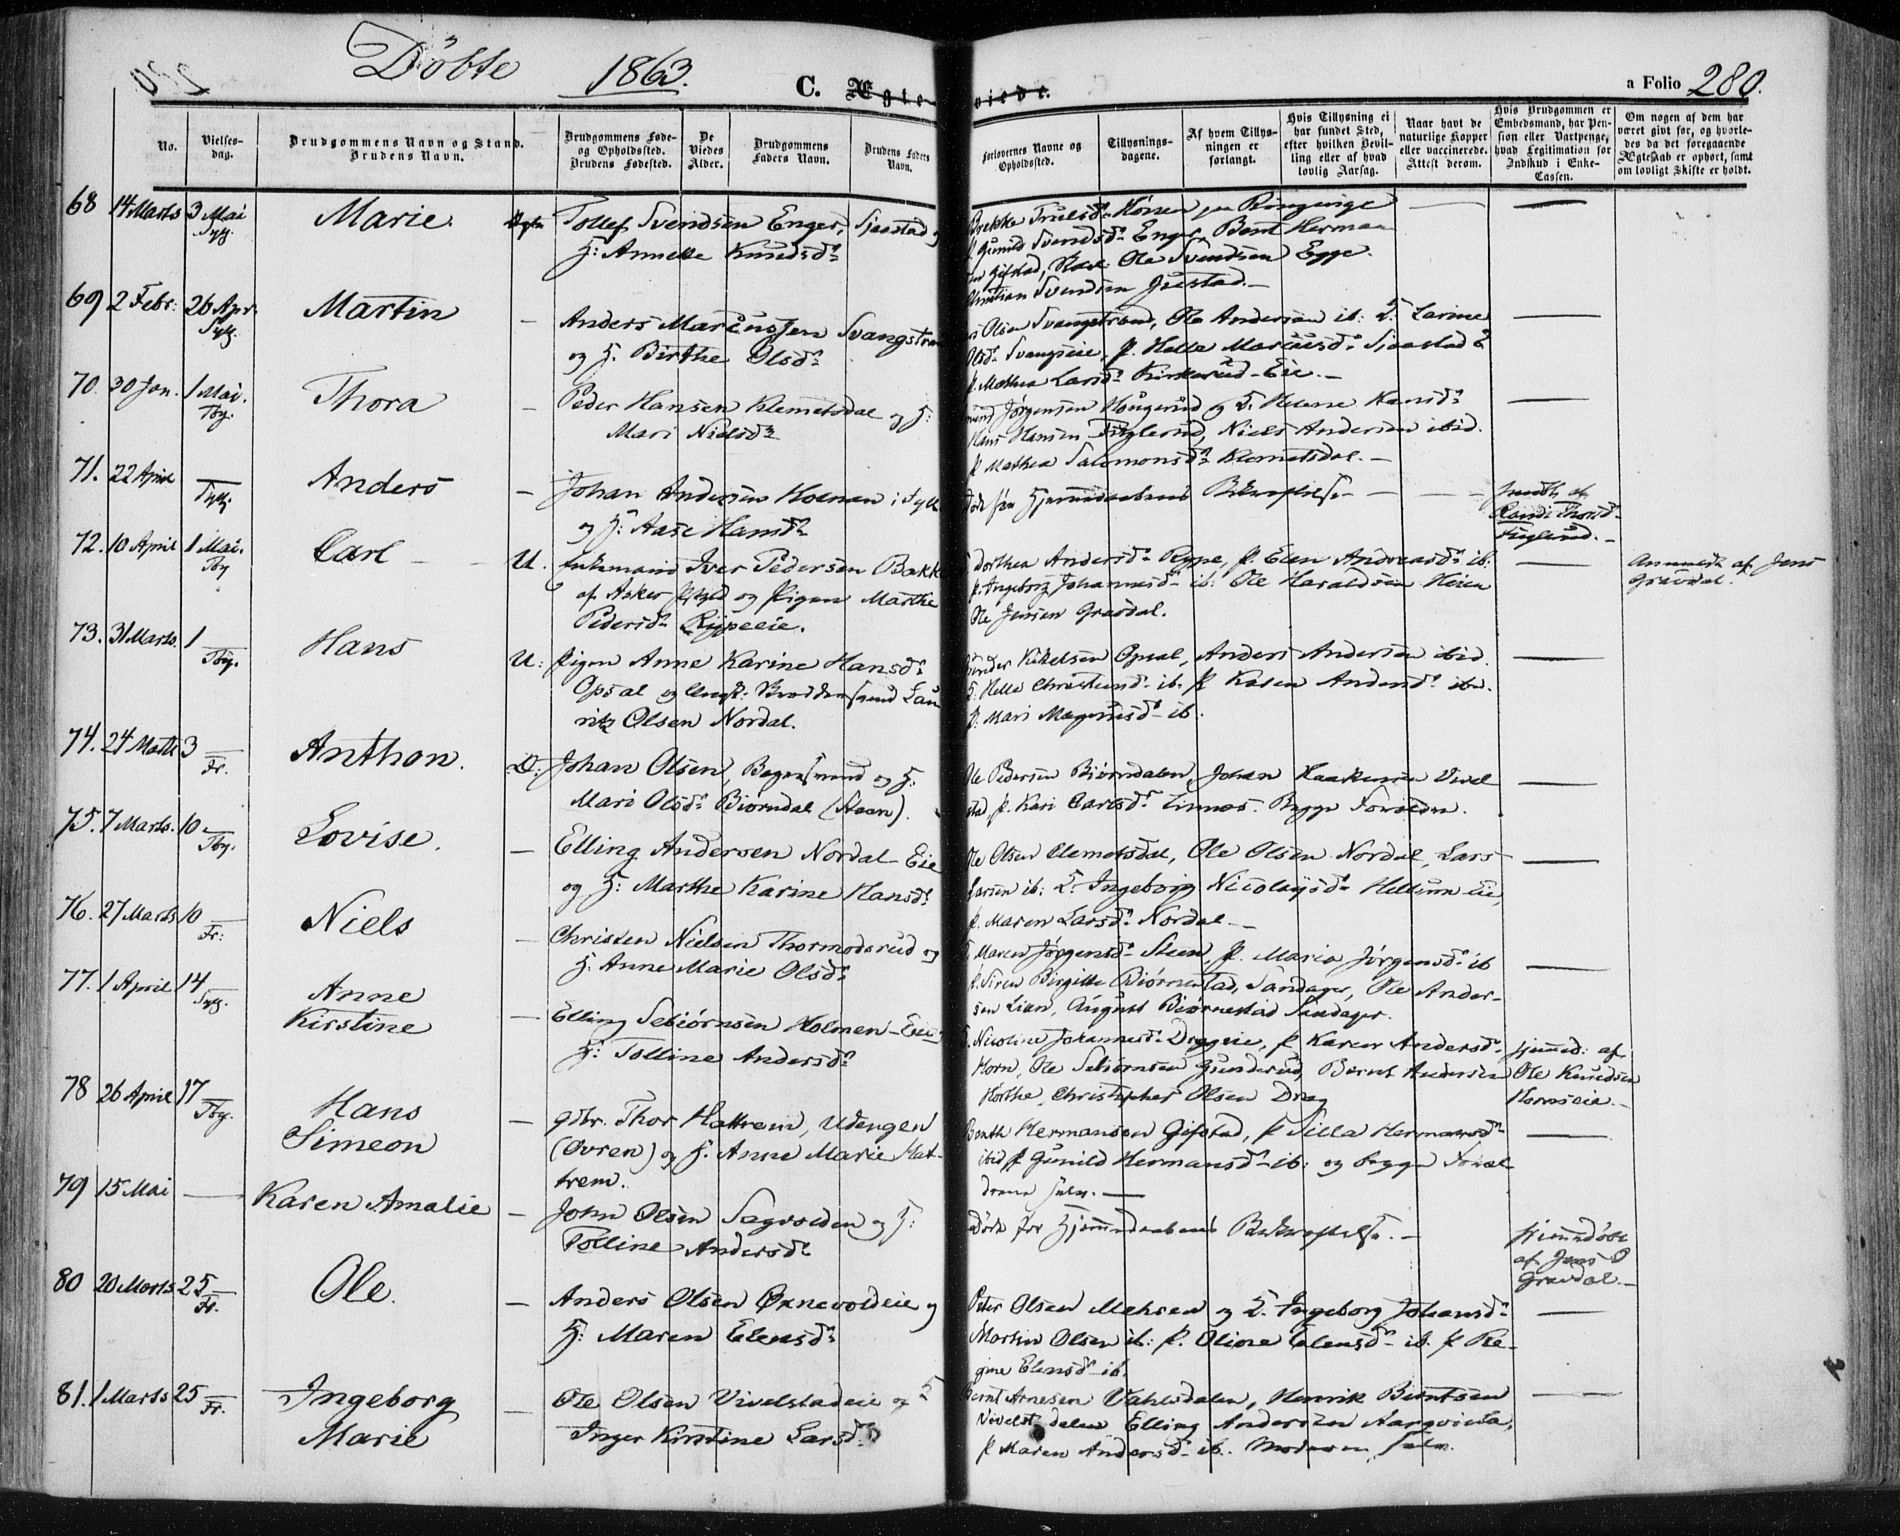 Döbte 1863. C. Ægte-viede. a Folio 280.
No.
Vielses-
dag.
Brudgommens Navn og Stand.
Brudens Navn.
Brudgommens Føde-
og Opholdssted.
Brudens Fødested.
De
Viedes
Alder.
Brudgommens
Faders Navn.
Brudens Faders
Navn.
Forlovernes Navne og
Opholdssted.
Tillysnings-
dagene.
Af hvem Tillys-
ningen er
forlangt.
Hvis Tillysning ei
har fundet Sted,
efter hvilken Bevil-
ling eller af hvad
lovlig Aarsag.
Naar havt de
naturlige Kopper
eller vaccinerede.
Attest derom.
Hvis Brudgommen er
Embedsmand, har Pen-
sion eller Vartpenge,
hvad Legitimation for
Indskud i Enke-
Cassen.
Om nogen af dem har
været givt før, og hvorle-
des da det foregaaende
Ægteskab er ophørt, samt
om lovligt Skifte er holdt.
68 14 Marts 3 Mai Marie. Ægte Tollef Svendsen Enger, Sjaastad
Syll. H: Annette Knudsd.
Gunild Svendsd. Enger, Bent Herman
Gifstad, Ole Svendsen Egge.
Christian Svendsen
69 2 Febr. 26 Apr. Martin — Anders Marcussen Svangstra
Syll. og H. Birthe Olsd.
Olsen Svangstrand, Ole Andersen ib: Larine
Olsd. Svangseie, P. Helle Marcusd. Sjaastad
P. Mathea Larsd. Kirkerud-Eie.—
70. 30 Jan. 1 Mai. Thora — Peder Hansen Klemetsdal og H:
Tby. Mari Nielsd.
Jørgensen Haugerud og Helene Hansd.
Hans Hansen Fuglerud, Niels Andersen ibid.
P. Mathea Salomonsd. Klemetsdal.—
71. 22 April Anders — Johan Andersen Holmen i Sylli
Syll. og H: Aase Hansd.
Døde før Hjemmedaabens Bekræftelse — — —
af
Randi Thorsd.
Fuglerud.—
72. 10 April 1 Mai. Carl — U. Enkemand Iver Pedersen Bakke
Tby af Asker og Pigen Marthe
Pedersd. Rypeeie.
Dorthea Andersd. Rype, P. Elen Andreasd. ib:
P. Ingeborg Johannesd. ib: Ole Haraldsen Heien
Ole Jensen Gravdal.
Anmeldt af Jens
Gravdal.
73. 31 Marts. 1 Hans U: Pigen Anne Karine Hansd.
Tby. Opsal og Ungk. Lau
ritz Olsen Nordal.
Kittelsen Opsal, Anders Andersen ibid.
Helle Christensd. ib. P Karen Andersd. ibd.
P. Mari Magnusd. ib.
74. 24 Marts 3 Anthon. D: Johan Olsen, Bogersmand og H:
Fr. Mari Olsd. Biørndal (Aaen).
Ole Pedersen Biørndalen, Johan Haakensen Vivel
stad, P. Kari Carlsd. Linnes. Begge Forældre.
75. 7 Marts. 10 Lovise. — Elling Andersen Nordal-Eie
Tby. og H: Marthe Karine Hansd.
Ole Olsen Clemetsdal, Ole Olsen Nordal, Lars
Larsen ib: Ingeborg Nicolaysd. Hellum-Eie,
P. Maren Larsd. Nordal—
76. 27 Marts 10 Niels — Christen Nielsen Thormodsrud og
Fr: H. Anne Marie Olsd.
Maren Jørgensd. Steen, P. Maria Jörgensd. ib
P. Siren Birgitte Biørnestad, Sandager, Ole Ander-
sen Lian, August Biørnestad Sandager.
77. 1 April 14 Anne — Elling Sebiørnsen Holmen-Eie
Syll. Kirstine H: Tolline Andersd.
Nicoline Johannesd. Drageie, P Karen Andersd.
Horn, Ole Sebiørnsen Gunderud, Bernt Andersen
Hørthe, Christopher Olsen Drag
Hjemmed: af
Ole Knudsen
Horneie.—
78 26 April 17 Hans — gdbr. Thor Hattrem, Udengen
Tby. Simeon (Øvren) og H. Anne Marie Hat-
trem.
Benth Hermansen Gifstad, P Silla Hermansd.
ibid P Gunild Hermansd. ib: og begge Foræl-
drene selv.—
79 15 Mai — Karen Amalie — John Olsen Sagvolden og H:
Tolline Andersd.
Døde før Hjemmedaabens Bekræftelse.—
Hjemmedöbt
af Jens
Gravdal.—
80 20 Marts 25 Ole. — Anders Olsen Ørnevoldeie og
Fr. H: Maren Elensd.
Peter Olsen Mehren og Ingeborg Johansd.
Martin Olsen ib: P. Oline Elensd. ib. P Re-
gine Elensd. ib.
81. 1 Marts 25 Ingeborg — Ole Olsen Vivelstadeie og
Fr. Marie Inger Kirstine Larsd.
Bernt Arnesen Vahlsdalen, Henrik Berntsen
Vivelst. dalen Elling Andersen
P Maren Andersd. ib. Moderen selv.